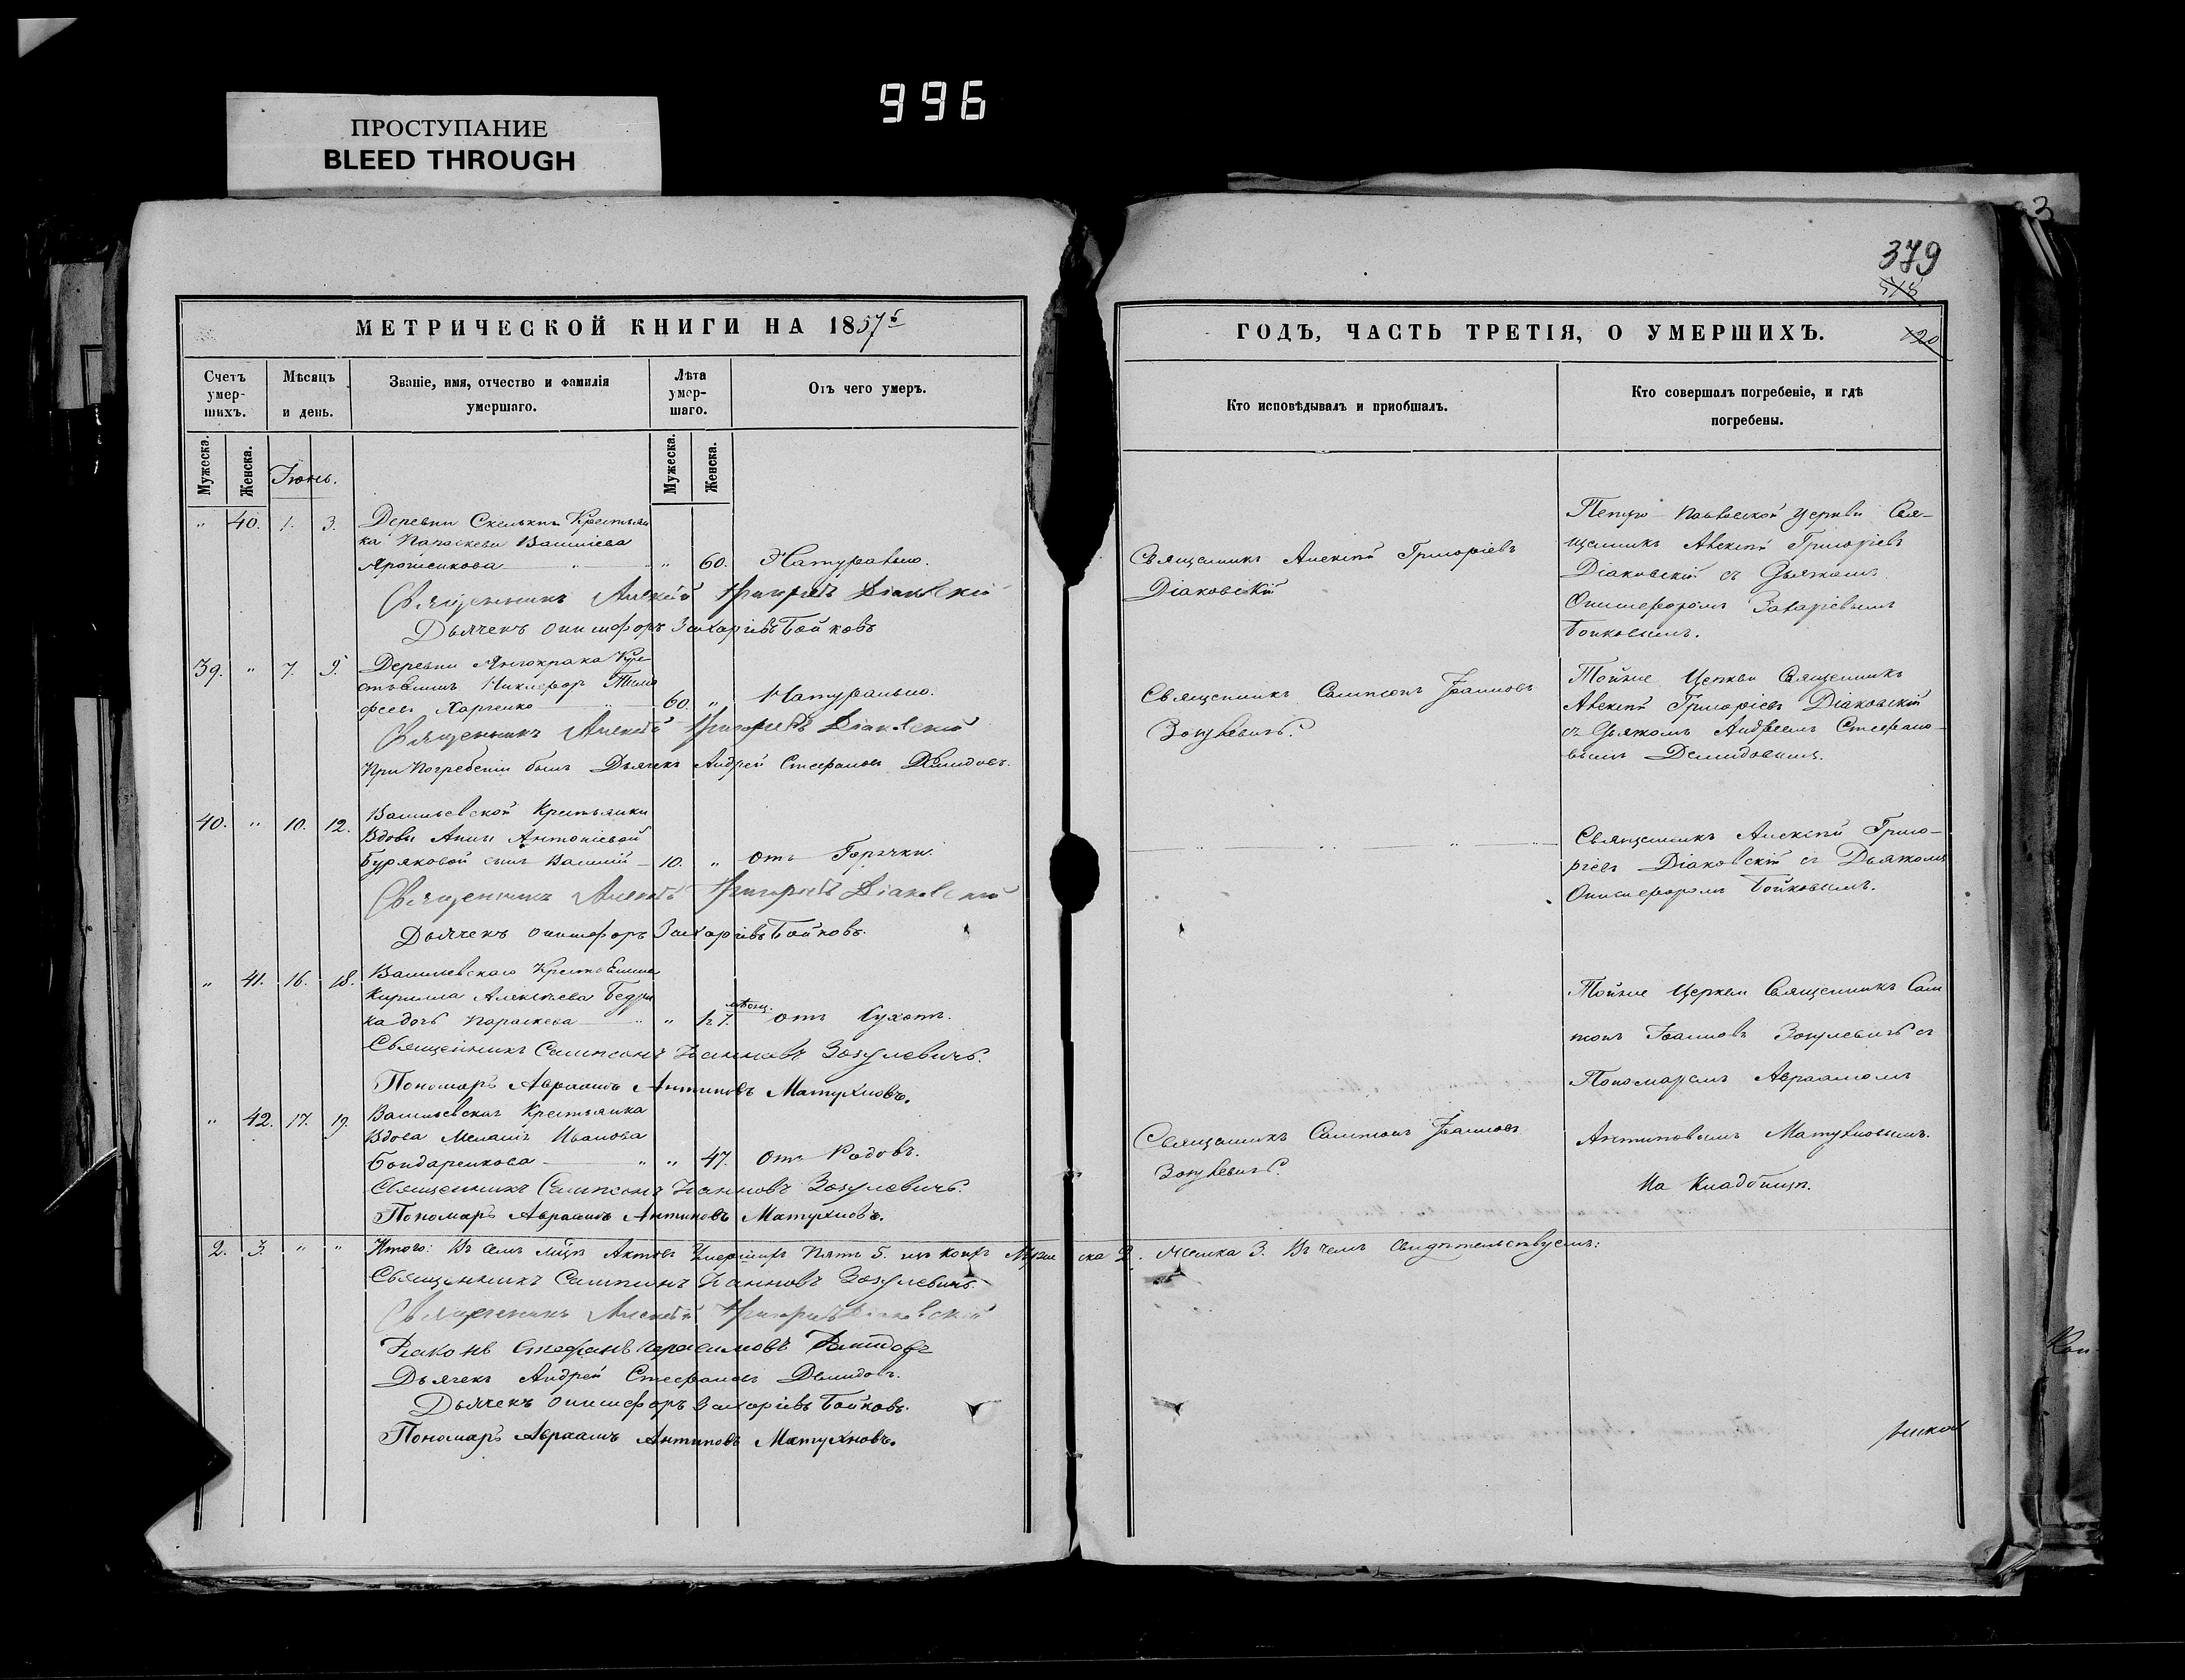 996
ПРОСТУПАНИЕ
BLEED THROUGH
МЕТРИЧЕСКОЙ КНИГИ НА 1857й
Счетъ умер-шихъ.
Мѣсяцъ и день.
Званіе, имя, отчество и фамилія умершаго.
Лѣта умер-шаго.
Отъ чего умеръ.
Мужеска.
Женска.
Мужеска.
Женска.
Іюнь.
" 40. 1. 3. Деревни Скельки Крестьян
ка Параскева Василіева
" 60. Натурально.
Священникъ Алексій Григоріевъ Діаковскій
Дьячекъ Онисифоръ Захаріевъ Бойковъ
39. " 7. 9. Деревни Янчокрака Кре
стьянинъ Никифоръ Тимо
феевъ Харченко 60. " Натурально.
Священникъ Алексій Григоріевъ Діаковскій
При Погребеніи былъ Дьячекъ Андрей Стефановъ Демидовъ.
40. " 10. 12. Васильевской Крестьянки
Вдовы Анны Антоніевой
Буряковой сынъ Василій 10. " отъ Горячки.
Священникъ Алексій Григоріевъ Діаковскій
Дьячекъ Онисифоръ Захаріевъ Бойковъ.
" 41. 16. 18. Васильевскаго Крестьянина
Кирилла Алексѣева Бедри
ка дочь Параскева " мѣсяц. отъ Сухотъ.
Священникъ Сампсонъ Іоанновъ Зозулевичъ.
Пономарь Авраамъ Антиповъ Матухновъ.
" 42. 17. 19. Васильевская Крестьянка
Вдова Меланія Иванова
Бондаренкова " " 47. Отъ Родовъ.
Священникъ Сампсонъ Іоанновъ Зозулевичъ.
Пономарь Авраамъ Антиповъ Матухновъ.
2. 3. " " Итого: Въ семъ мѣсяцѣ Актовъ Умершихъ Пять 5. изъ коихъ Муже ска 2. Женска 3. Въ чемъ Свидѣтельствуемъ:
Священникъ Сампсонъ Іоанновъ Зозулевичъ.
Священникъ Алексій Григоріевъ Діаковскій
Діаконъ Стефанъ Герасимовъ Демидовъ
Дьячекъ Андрей Стефановъ Демидовъ.
Дьячекъ Онисифоръ Захаріевъ Бойковъ.
Пономарь Авраамъ Антиповъ Матухновъ.
379
120
ГОДЪ, ЧАСТЬ ТРЕТІЯ, О УМЕРШИХЪ.
Кто исповѣдывалъ и пріобщалъ.
Кто совершалъ погребеніе, и гдѣ погребены.
Священникъ Алексій Григоріевъ
Діаковскій
Петро Павловской Церкви Свя-
щенникъ Алексій Григоріевъ
Діаковскій съ Дьячкомъ
Онисифоромъ Захаріевымъ
Бойковымъ.
Священникъ Сампсонъ Іоанновъ
Зозулевичъ.
Тойже Церкви Священникъ
Алексій Григоріевъ Діаковскій
съ Дьячкомъ Андреемъ Стефано-
вымъ Демидовымъ.
Священникъ Алексій Григо-
ріевъ Діаковскій съ Дьячкомъ
Онисифоромъ Бойковымъ.
Тойже Церкви Священникъ Сам
псонъ Іоанновъ Зозулевичъ съ
Пономаремъ Авраамомъ
Священникъ Сампсонъ Іоанновъ
Зозулевичъ.
Антиповымъ Матухновымъ.
На Кладбищѣ.